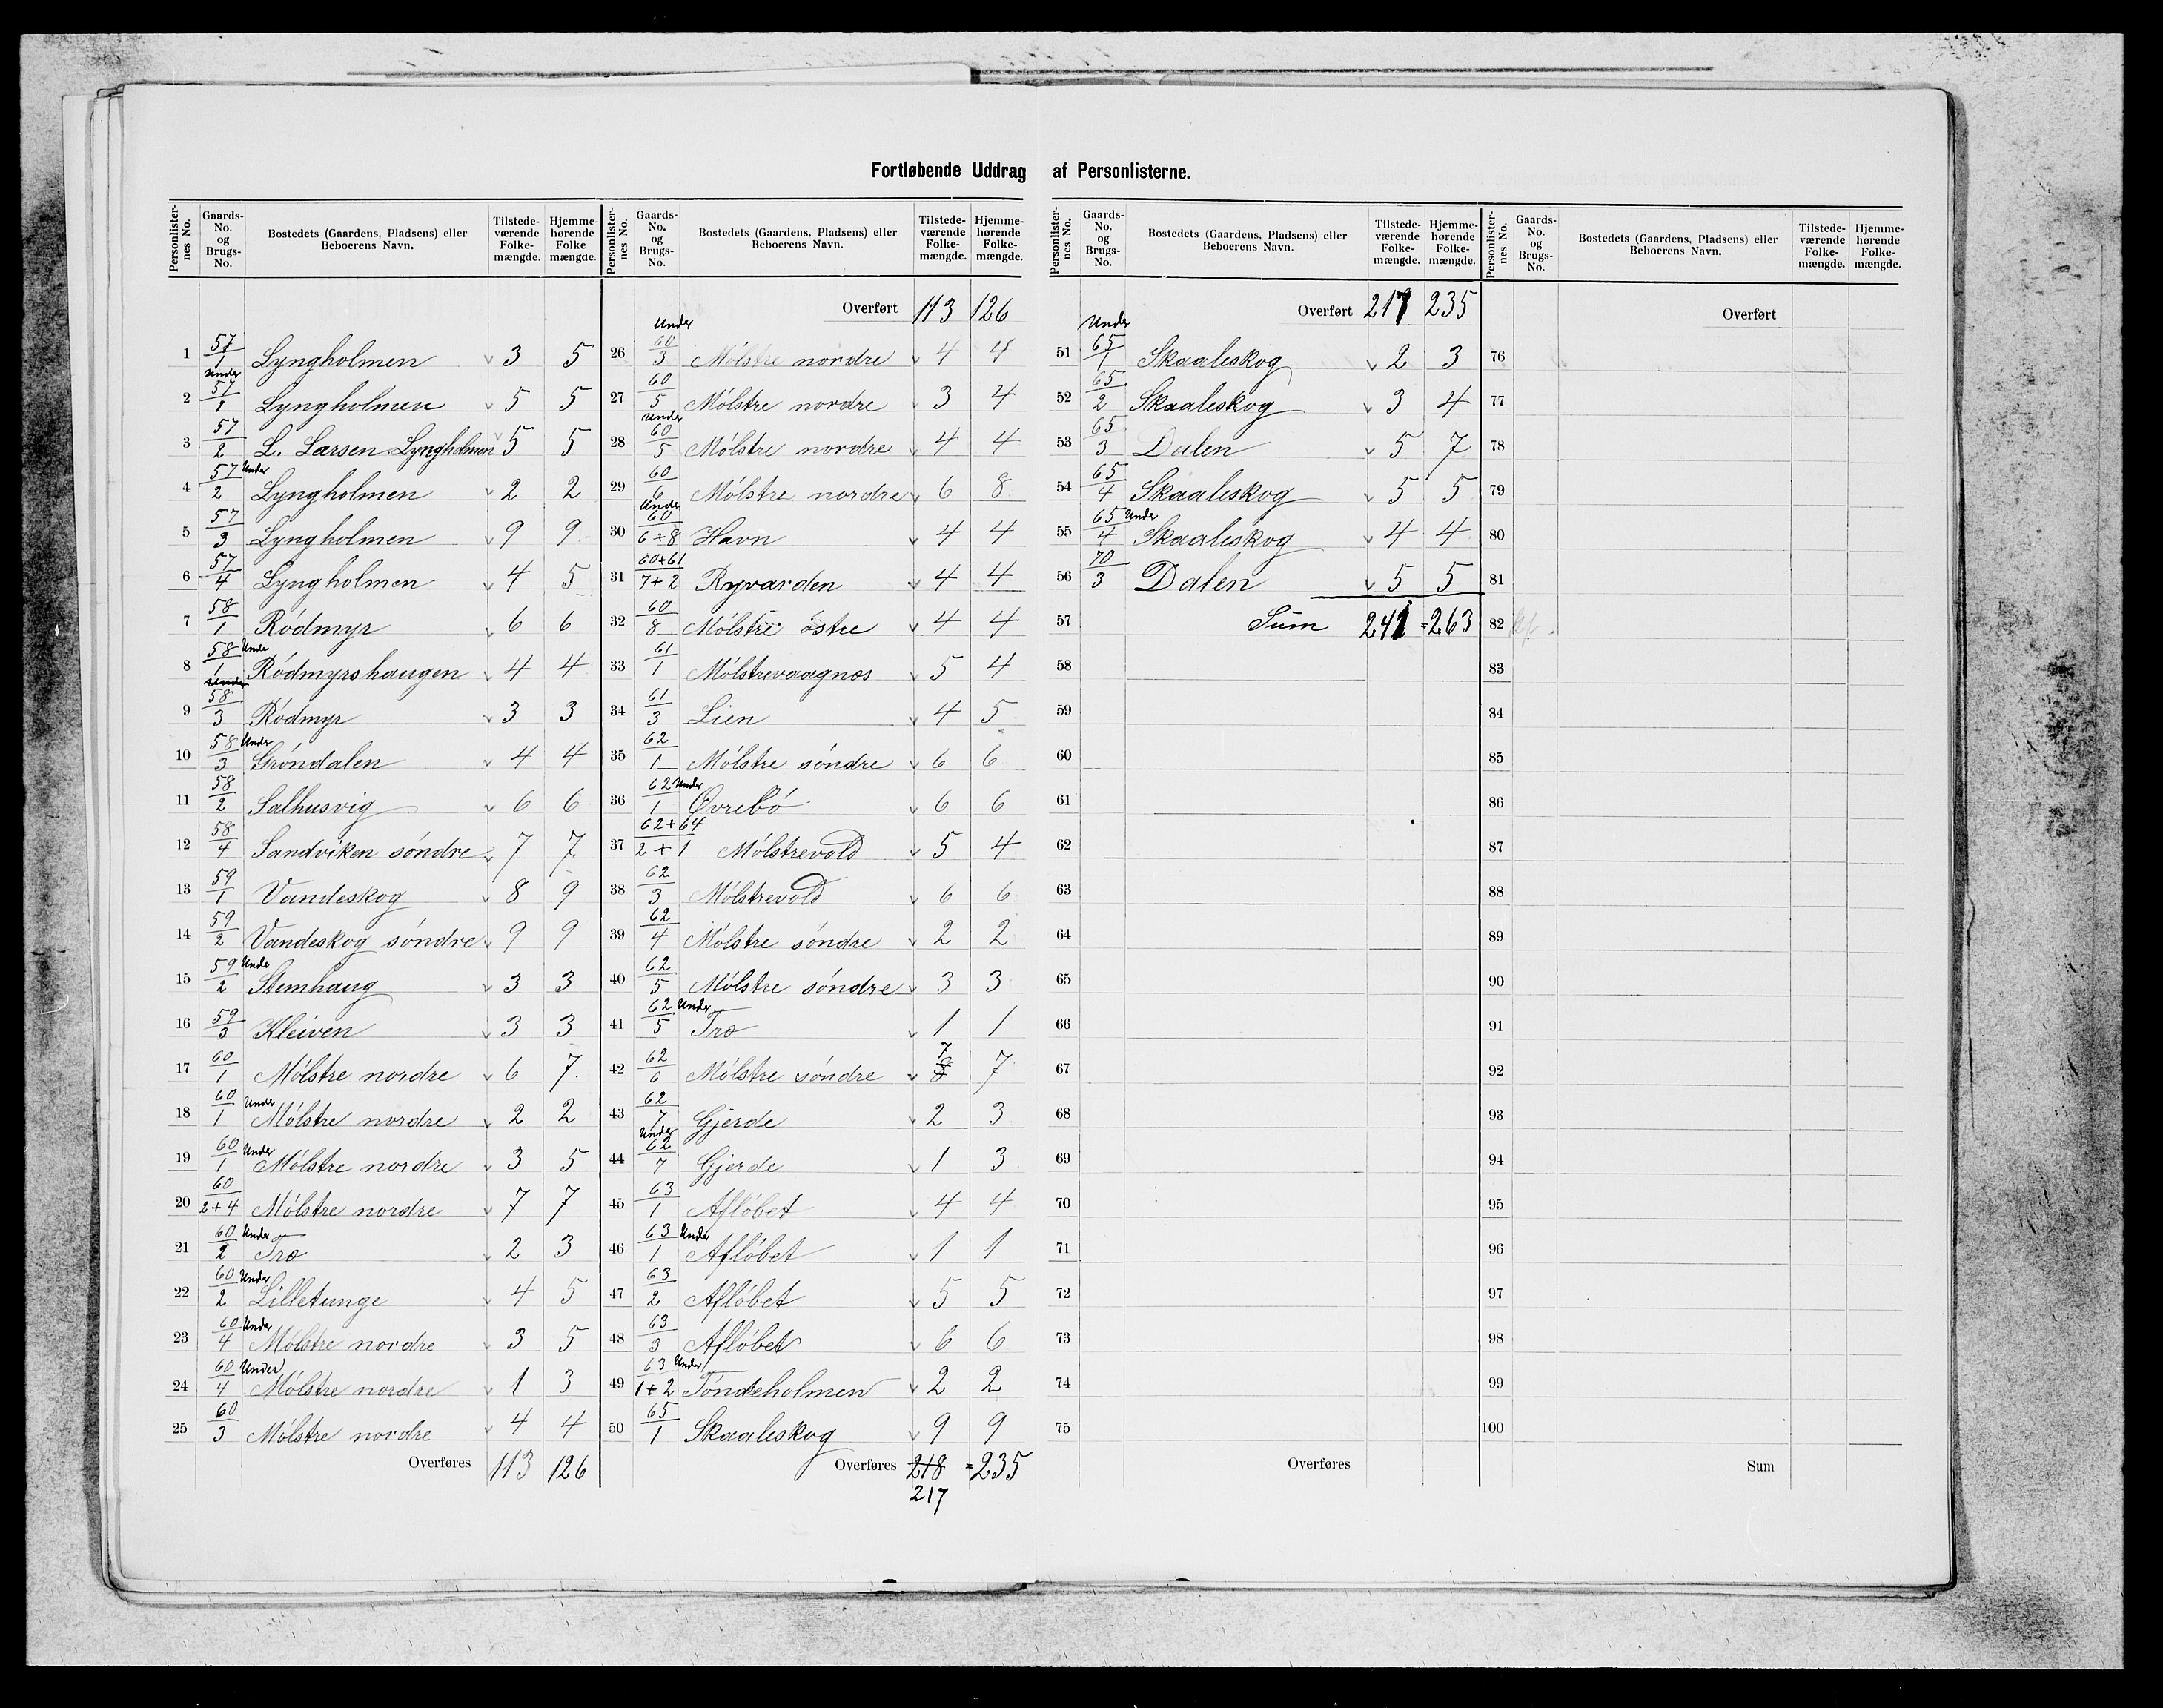 Fortløbende Uddrag af Personlisterne.
Personlister-nes No. | Gaards-No. og Brugs-No. | Bostedets (Gaardens, Pladsens) eller Beboerens Navn. | Tilstede-værende Folke-mængde. | Hjemme-hørende Folke mængde.
1 57/1 Lyngholmen v 3 5
2 Under 57/1 Lyngholmen v 5 5
3 57/2 L. Larsen Lyngholmen v 5 5
4 57/2 Under Lyngholmen v 2 2
5 57/3 Lyngholmen v 9 9
6 57/4 Lyngholmen v 4 5
7 58/1 Ródmyr v 6 6
8 58/1 Unde Ródmyrshaugen v 4 4
9 58/3 Ródmyr v 3 3
10 58/3 Under Gróndalen v 4 4
11 58/2 Salhusvig v 6 6
12 58/4 Sandviken sóndre v 7 7
13 59/1 Vandeskog v 8 9
14 59/2 Vandeskog sóndre v 9 9
15 59/2 Unde Stemhaug v 3 3
16 59/3 Kleiven v 3 3
17 60/1 Mólstre nordre v 6 7.
18 60/1 Under Mólstre nordre v 2 2
19 60/1 Under Mólstre nordre v 3 5
20 60/2+4 Mólstre nordre v 7 7
21 60/2 Under Træ v 2 3
22 60/2 Under Lilletunge v 4 5
23 60/4 Under Mólstre nordre v 3 5
24 60/4 Under Mólstre nordre v 1 3
25 60/3 Mólstre nordre v 4 4
Overføres 113 126
Personlister-nes No. | Gaards-No. og Brugs-No. | Bostedets (Gaardens, Pladsens) eller Beboerens Navn. | Tilstede-værende Folke-mængde. | Hjemme-hørende Folke-mængde.
Overført 113 126
26 Under 60/3 Mólstre nordre v 4 4
27 60/5 Mólstre nordre v 3 4
28 Under 60/5 Mólstre nordre v 4 4
29 60/6 Mólstre nordre v 6 8
30 Under 60/6+8 Havn v 4 4
31 60+61/7+2 Ryvarden v 4 4
32 60/8 Mólstre óstre v 4 4
33 61/1 Mólstrevaagnæs v 5 4
34 61/3 Lien v 4 5
35 62/1 Mólstre sóndre v 6 6
36 62/1 Under Øvrebó v 6 6
37 62+64/2+1 Mólstrevold v 5 4
38 62/3 Mólstrevold v 6 6
39 62/4 Mólstre sóndre v 2 2
40 62/5 Mólstre sóndre v 3 3
41 62/5 Under Træ v 1 1
42 62/6 Mólstre sóndre v 8 7 7
43 62/7 Gjerde v 2 3
44 Under 62/7 Gjerde v 1 3
45 63/1 Aflóbet v 4 4
46 63/1 Under Aflóbet v 1 1
47 63/2 Aflóbet v 5 5
48 63/3 Aflóbet v 6 6
49 63/1+2 Under Tóndeholmen v 2 2
50 65/1 Skaaleskog v 9 9
Overføres 218 = 235
217
Personlister-nes No. | Gaards-No. og Brugs-No. | Bostedets (Gaardens, Pladsens) eller Beboerens Navn. | Tilstede-værende Folke-mængde. | Hjemme-hørende Folke-mængde.
Overført 217 235
51 Under 65/1 Skaaleskog v 2 3
52 65/2 Skaaleskog v 3 4
53 65/3 Dalen v 5 7
54 65/4 Skaaleskog v 5 5
55 65/4 Under Skaaleskog v 4 4
56 70/3 Dalen v 5 5
57 Sum 241 = 263
58
59
60
61
62
63
64
65
66
67
68
69
70
71
72
73
74
75
Overføres
Personlister-nes No. | Gaards-No. og Brugs-No. | Bostedets (Gaardens, Pladsens) eller Beboerens Navn. | Tilstede-værende Folke-mængde. | Hjemme-hørende Folke-mængde.
Overført
76
77
78
79
80
81
82
83
84
85
86
87
88
89
90
91
92
93
94
95
96
97
98
99
100
Sum